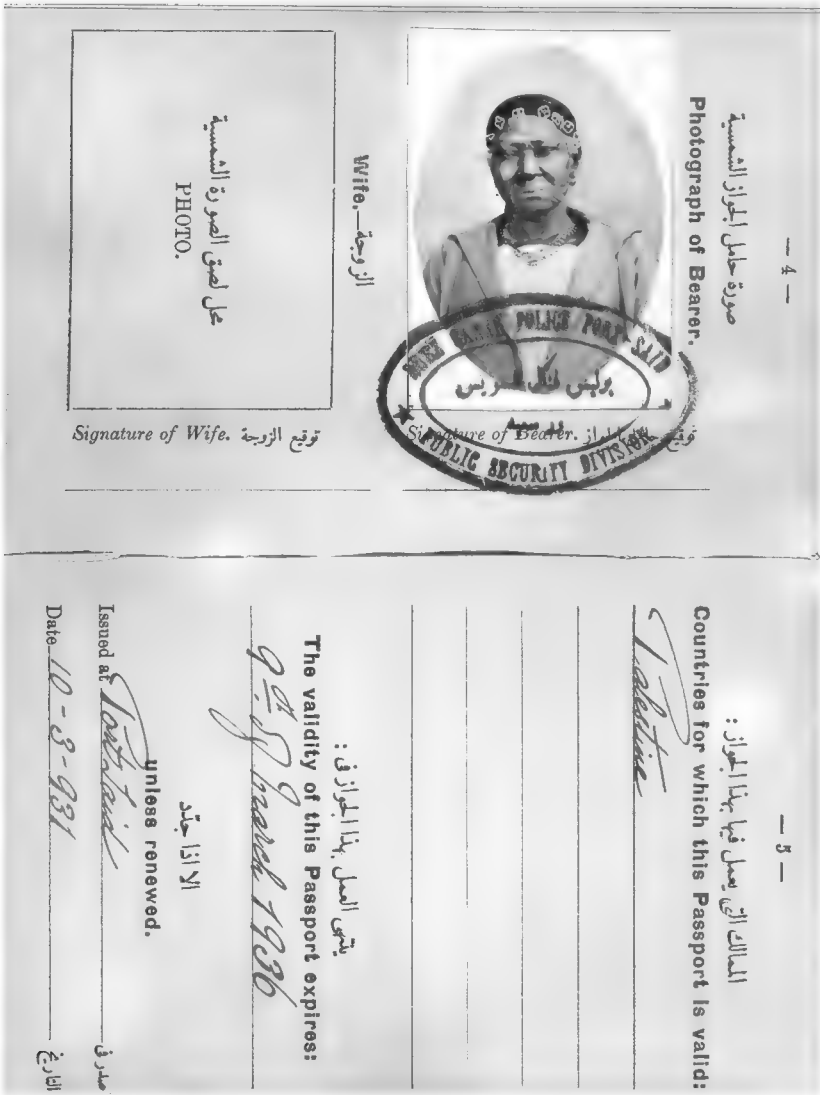 — 4 —
صورة حامل الجواز الشمسية
Photograph of Bearer.
SUEZ CANAL POLICE PORT SAID
بوليس قنال السويس
بور سعيد
PUBLIC SECURITY DIVISION
Signature of Bearer. توقيع حامل الجواز
الزوجة—Wife.
محل لصق الصورة الشمسية
PHOTO.
Signature of Wife. توقيع الزوجة
— 5 —
الممالك التي يعمل فيها بهذا الجواز :
Countries for which this Passport is valid:
Palestine
ينتهى العمل بهذا الجواز فى :
The validity of this Passport expires:
9th of March 1936
الا اذا جدّد
unless renewed.
Issued at Port Said صدر فى
Date 10-3-931 التاريخ